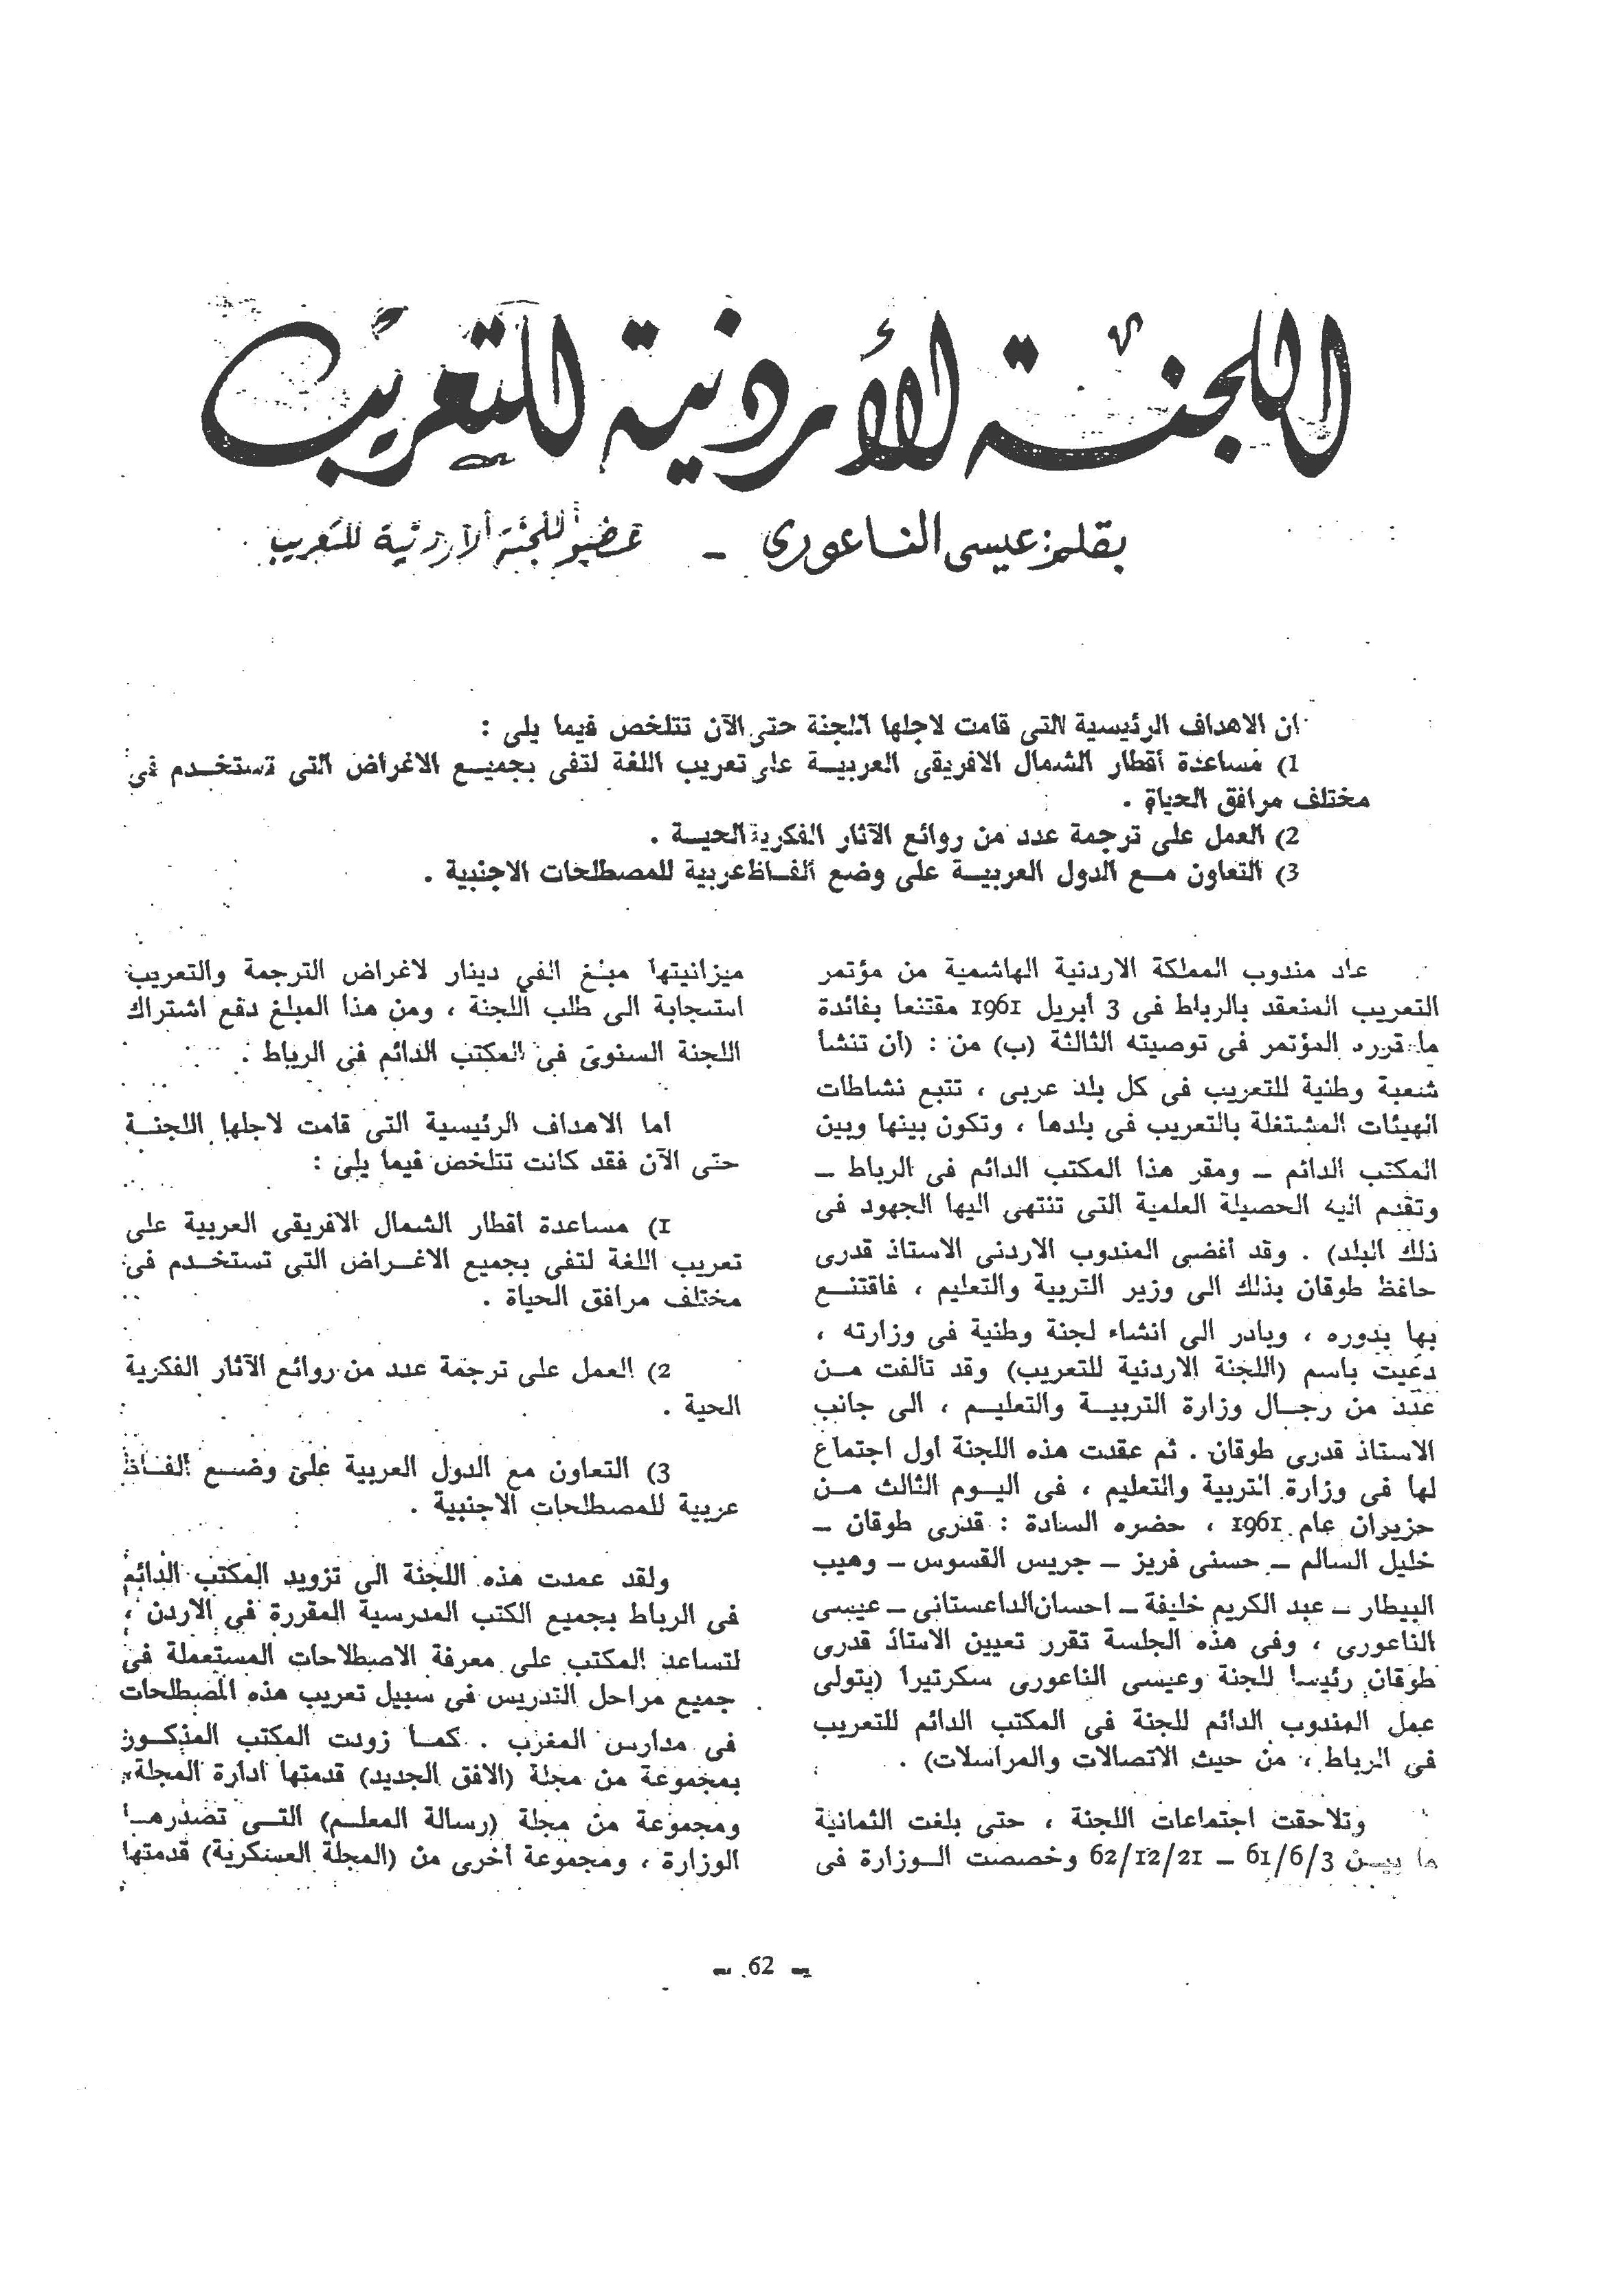 اللجنة الأردنية للتعريب
بقلم: عيسى الناعورى – عضو اللجنة الأردنية للتعريب
ان الاهداف الرئيسية التى قامت لاجلها اللجنة حتى الآن تتلخص فيما يلى :
1) مساعدة أقطار الشمال الافريقى العربيـة على تعريب اللغة لتفى بجميـع الاغراض التى تستخـدم فى
مختلف مرافق الحياة .
2) العمل على ترجمة عدد من روائع الآثار الفكرية الحيـة .
3) التعاون مـع الدول العربيـة على وضع ألفـاظ عربية للمصطلحات الاجنبية .
عاد مندوب المملكة الاردنية الهاشمية من مؤتمر
التعريب المنعقد بالرباط فى 3 أبريل 1961 مقتنعا بفائدة
ما قرره المؤتمر فى توصيته الثالثة (ب) من : (أن تنشأ
شعبة وطنية للتعريب فى كل بلد عربى ، تتبع نشاطات
الهيئات المشتغلة بالتعريب فى بلدها ، وتكون بينها وبين
المكتب الدائم – ومقر هذا المكتب الدائم فى الرباط –
وتقدم اليه الحصيلة العلمية التى تنتهى اليها الجهود فى
ذلك البلد) . وقد أفضى المندوب الاردنى الاستاذ قدرى
حافظ طوقان بذلك الى وزير التربية والتعليم ، فاقتنـع
بها بدوره ، وبادر الى انشاء لجنة وطنية فى وزارته ،
دعيت باسم (اللجنة الاردنية للتعريب) وقد تألفت مـن
عدد من رجـال وزارة التربيـة والتعليـم ، الى جانب
الاستاذ قدرى طوقان . ثم عقدت هذه اللجنة أول اجتماع
لها فى وزارة التربية والتعليم ، فى اليـوم الثالث مـن
حزيران عام 1961 ، حضره السادة : قدرى طوقان –
خليل السالم – حسنى فريز – جريس القسوس – وهيب
البيطار – عبد الكريم خليفة – احسان الداعستانى – عيسى
الناعورى ، وفى هذه الجلسة تقرر تعيين الاستاذ قدرى
طوقان رئيسا للجنة وعيسى الناعورى سكرتيرا (يتولى
عمل المندوب الدائم للجنة فى المكتب الدائم للتعريب
فى الرباط ، من حيث الاتصالات والمراسلات) .
وتلاحقت اجتماعات اللجنة ، حتى بلغت الثمانية
ما بيـن 61/6/3 – 62/12/21 وخصصت الـوزارة فى
ميزانيتها مبلغ الفى دينار لاغراض الترجمة والتعريب
استجابة الى طلب اللجنة ، ومن هذا المبلغ دفع اشتراك
اللجنة السنوى فى المكتب الدائم فى الرباط .
أما الاهداف الرئيسية التى قامت لاجلها اللجنـة
حتى الآن فقد كانت تتلخص فيما يلى :
1) مساعدة أقطار الشمال الافريقى العربية على
تعريب اللغة لتفى بجميع الاغـراض التى تستخـدم فى
مختلف مرافق الحياة .
2) العمل على ترجمة عدد من روائع الآثار الفكرية
الحية .
3) التعاون مع الدول العربية على وضـع ألفـاظ
عربية للمصطلحات الاجنبية .
ولقد عمدت هذه اللجنة الى تزويد المكتب الدائم
فى الرباط بجميع الكتب المدرسية المقررة فى الاردن ،
لتساعد المكتب على معرفة الاصطلاحات المستعملة فى
جميع مراحل التدريس فى سبيل تعريب هذه المصطلحات
فى مدارس المغرب . كمـا زودت المكتب المذكـور
بمجموعة من مجلة (الافق الجديد) قدمتها ادارة المجلة،
ومجموعة من مجلة (رسالة المعلـم) التـى تصدرهـا
الوزارة ، ومجموعة أخرى من (المجلة العسكرية) قدمتها
– 62 –